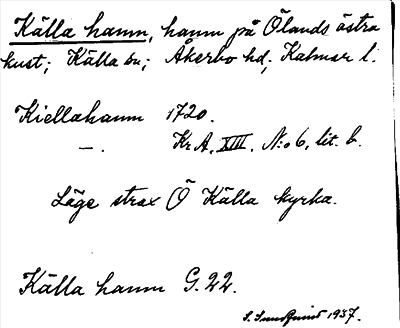 Källa hamn, hamn på Ölands östra
kust; Källa sn; Åkerbo hd; Kalmar l.
Kiellahamn 1720.
—. Kr A, XIII, N:o 6, lit. b.
Läge strax Ö Källa kyrka.
Källa hamn G. 22.
S. 1937.